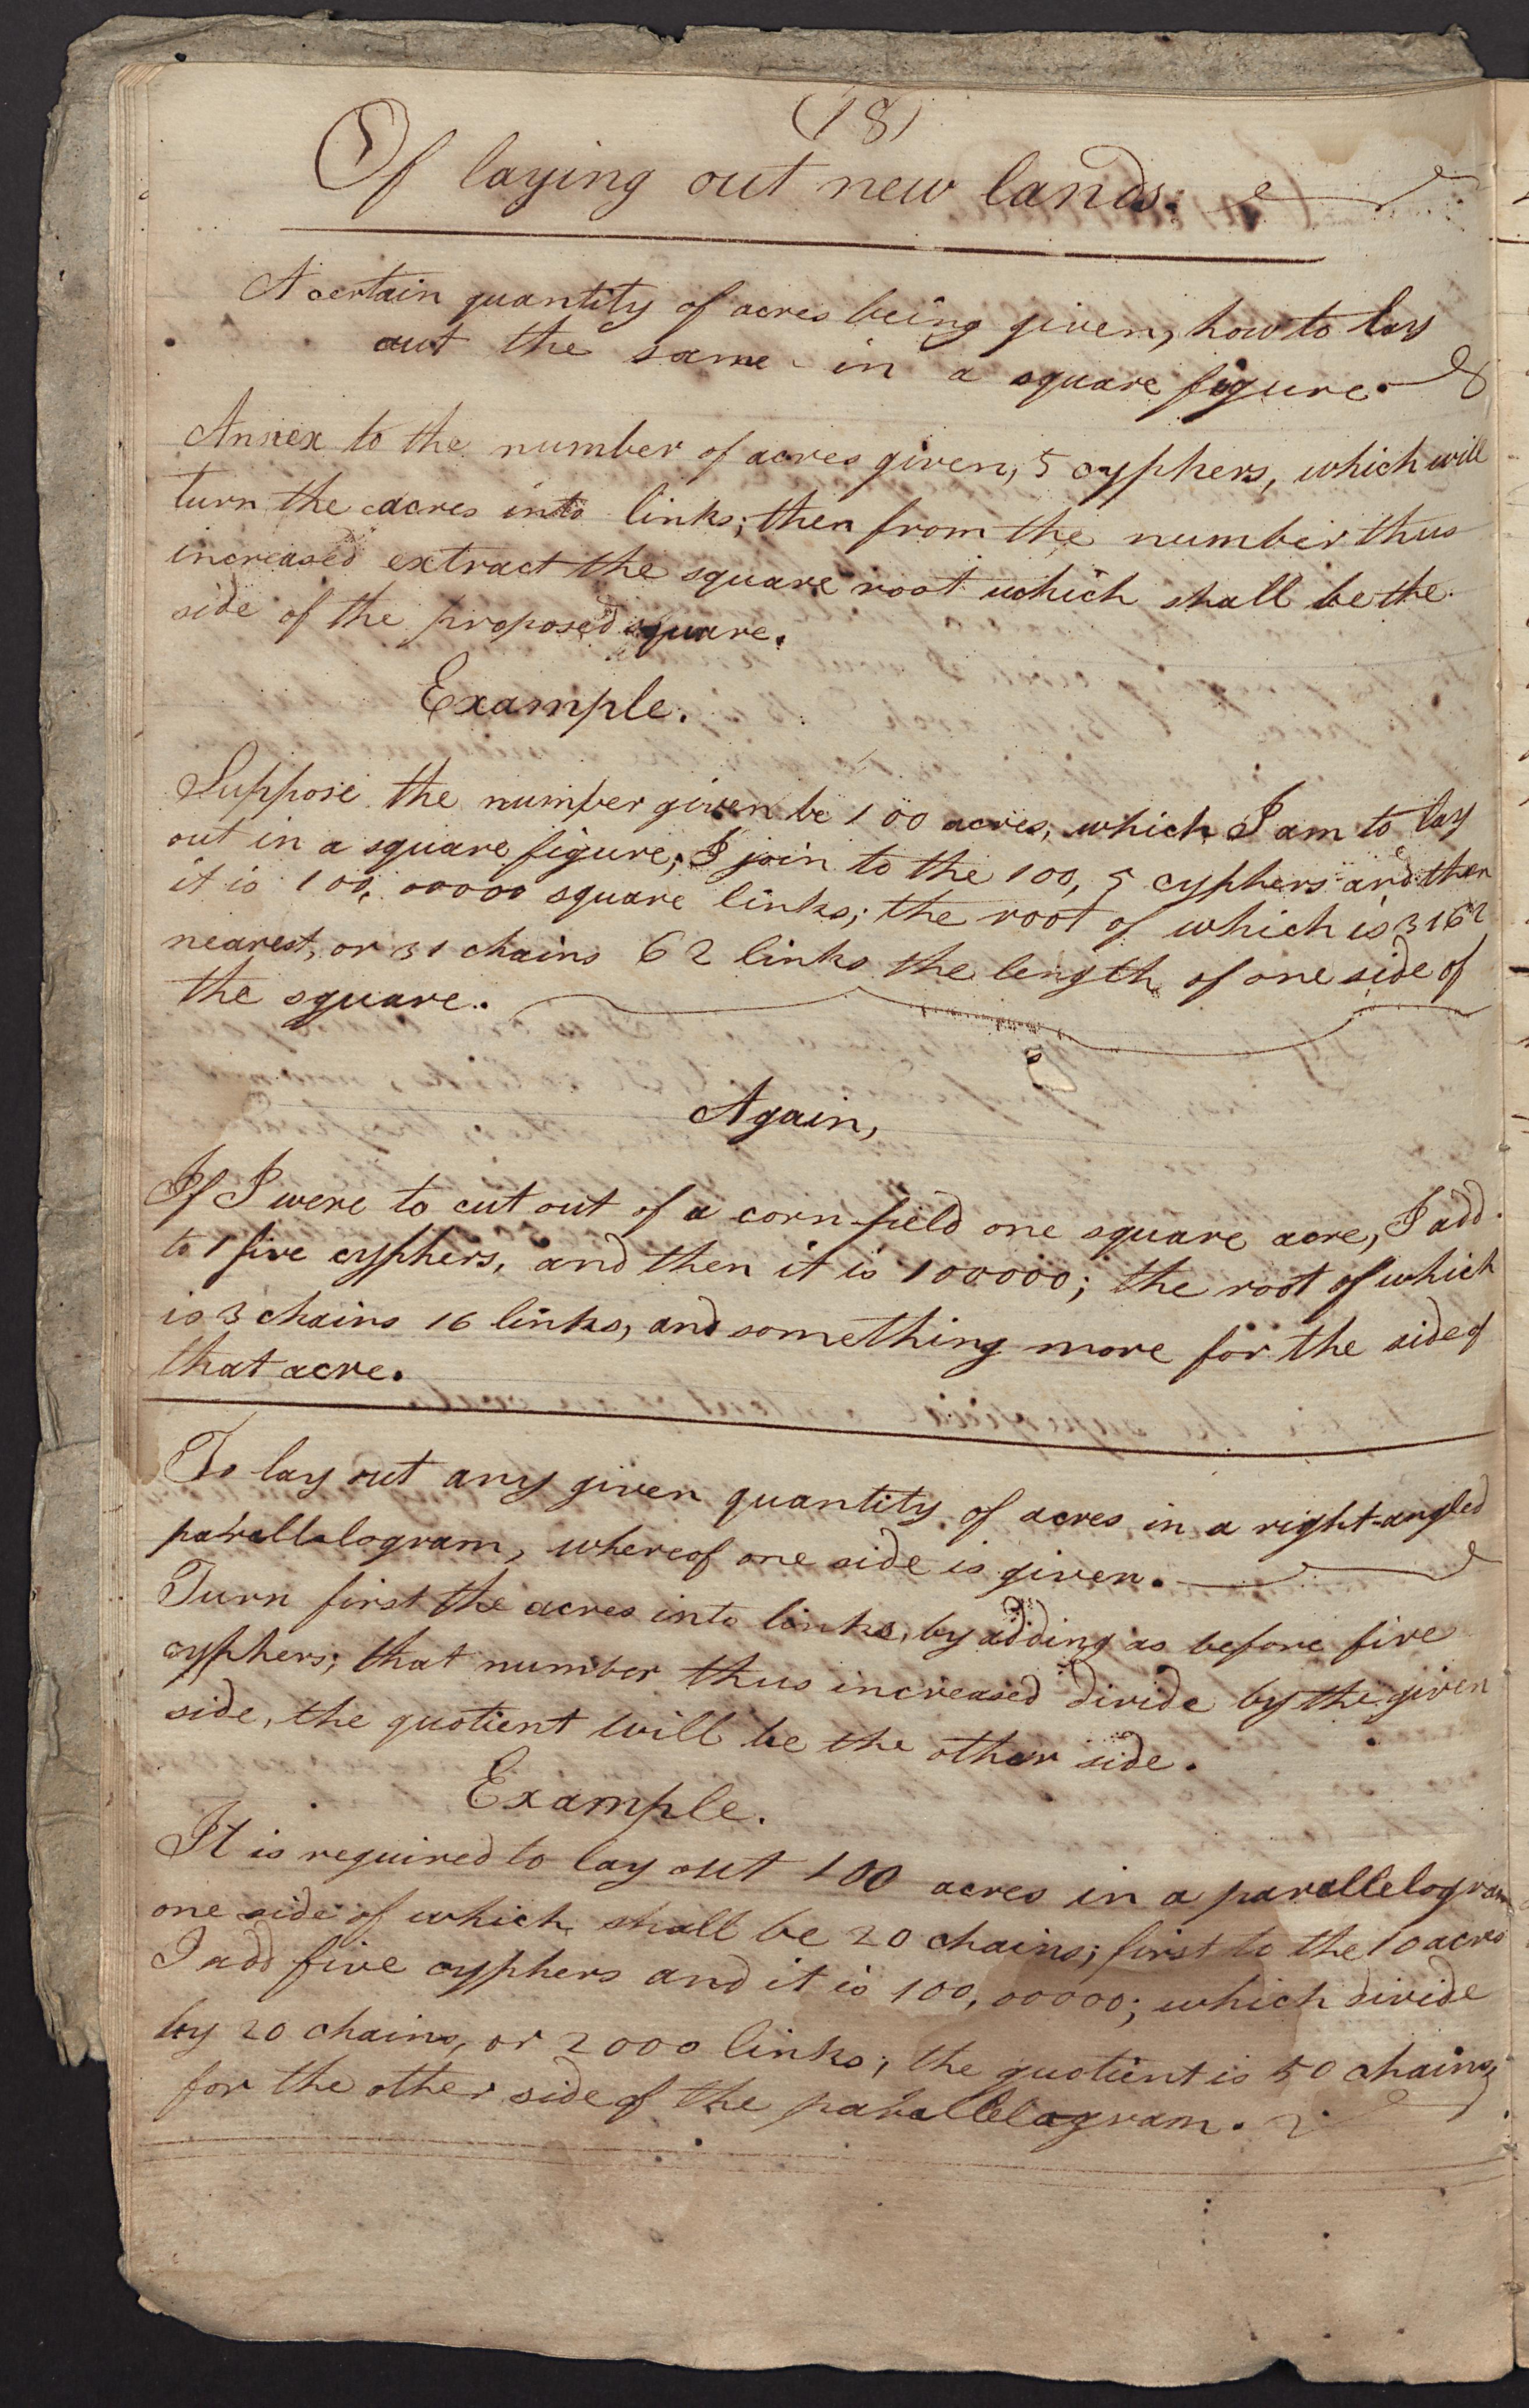 (18)
Of laying out new lands.
A certain quantity of acres being given, how to lay
out the same in a square figure.
Annex to the number of acres given, 5 cyphers, which will
turn the acres into links; then from the number thus
increased extract the square root which shall be the
side of the proposed square.
Example.
Suppose the number given be 100 acres, which I am to lay
out in a square figure, I join to the 100, 5 cyphers and then
it is 100,00000 square links; the root of which is 3162
nearest, or 31 chains 62 links the length of one side of
the square.
Again,
If I were to cut out of a corn-field one square acre, I add
to 1 five cyphers, and then it is 100000; the root of which
is 3 chains 16 links, and something more for the side of
that acre.
To lay out any given quantity of acres in a right-angled
parallalogram, whereof one side is given.
Turn first the acres into links, by adding as before five
cyphers; that number thus increased divide by the given
side, the quotient will be the other side.
Example.
It is required to lay out 100 acres in a parallelogram
one side of which shall be 20 chains; first to the 10 acres
I add five cyphers and it is 100,00000; which divide
by 20 chains, or 2000 links; the quotient is 50 chains,
for the other side of the parallelagram.